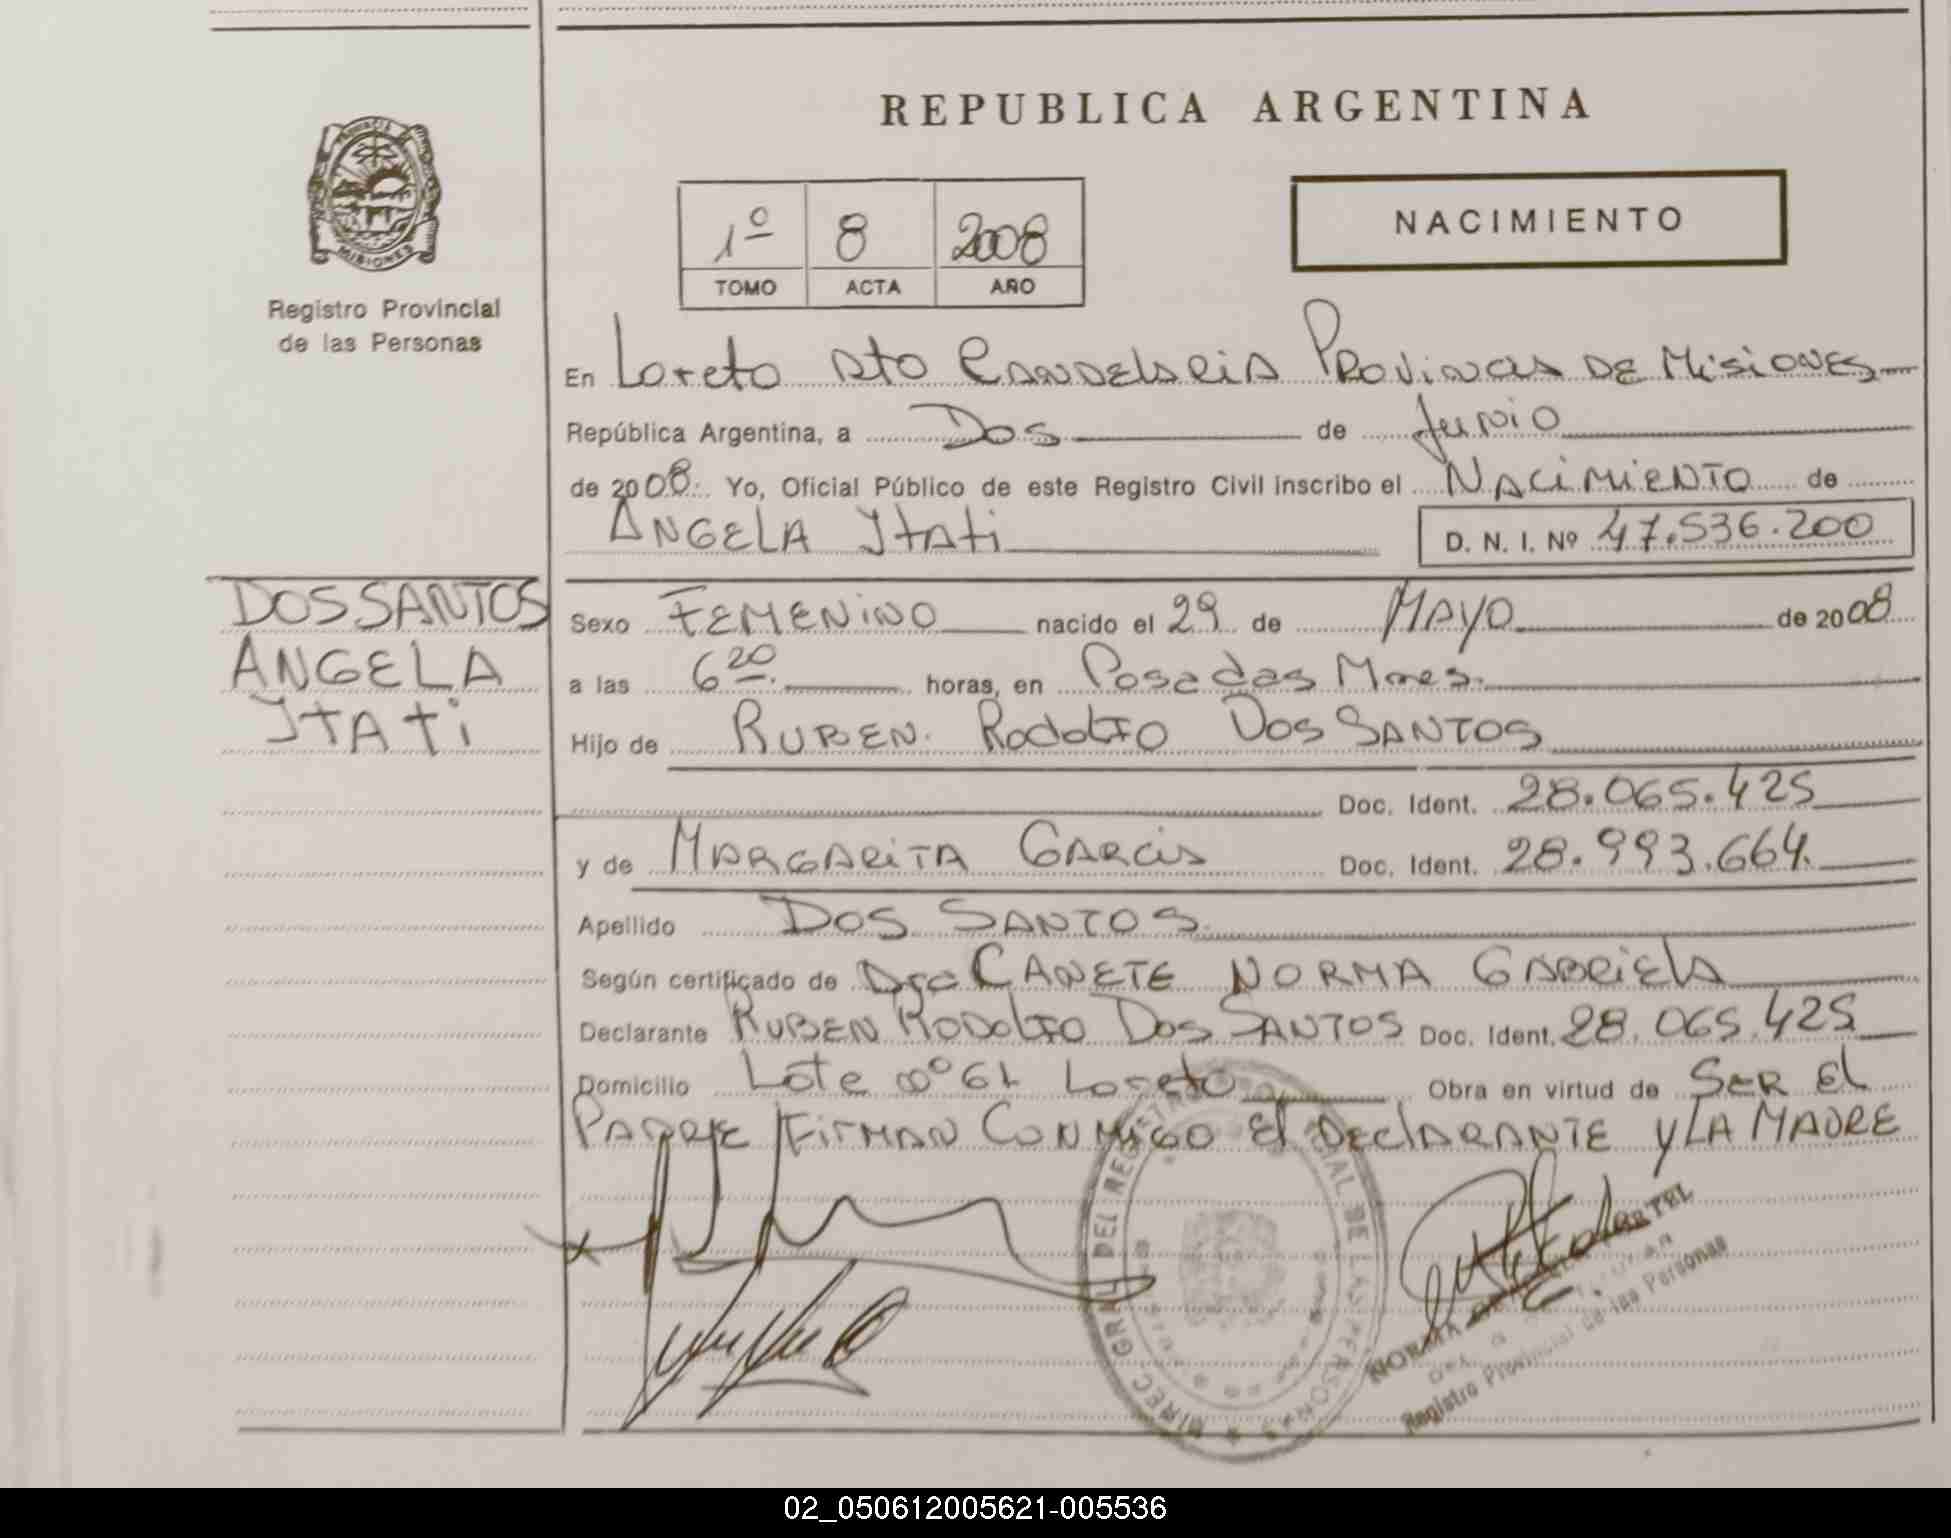 REPUBLICA ARGENTINA
PROVINCIA
MISIONES
Registro Provincial
de las Personas
1º 8 2008
TOMO ACTA AÑO
NACIMIENTO
En Loreto Dto Candelaria Provincia de Misiones
República Argentina, a Dos de Junio
de 2008. Yo, Oficial Público de este Registro Civil inscribo el NACIMIENTO de
ANGELA Itati D. N. I. Nº 47.536.200
DOS SANTOS
ANGELA
ITATi
Sexo FEMENINO nacido el 29 de MAYO de 2008
a las 6 20 horas, en Posadas Mnes.
Hijo de RUBEN RODOLFO DOS SANTOS
Doc. Ident. 28.065.425
y de MARGARITA GARCIA Doc. Ident. 28.993.664.
Apellido DOS SANTOS
Según certificado de Dra CANETE NORMA GABRIELA
Declarante RUBEN RODOLFO DOS SANTOS Doc. Ident. 28.065.425
Domicilio Lote nº 61 Loreto Obra en virtud de SER El
PADRE FIRMAN CONMIGO El DEClARANTE y LA MADRE
DIREC. GRAL DEL REGISTRO PROVINCIAL DE LAS PERSONAS
NORMA
Registro Provincial de las Personas
02_050612005621-005536